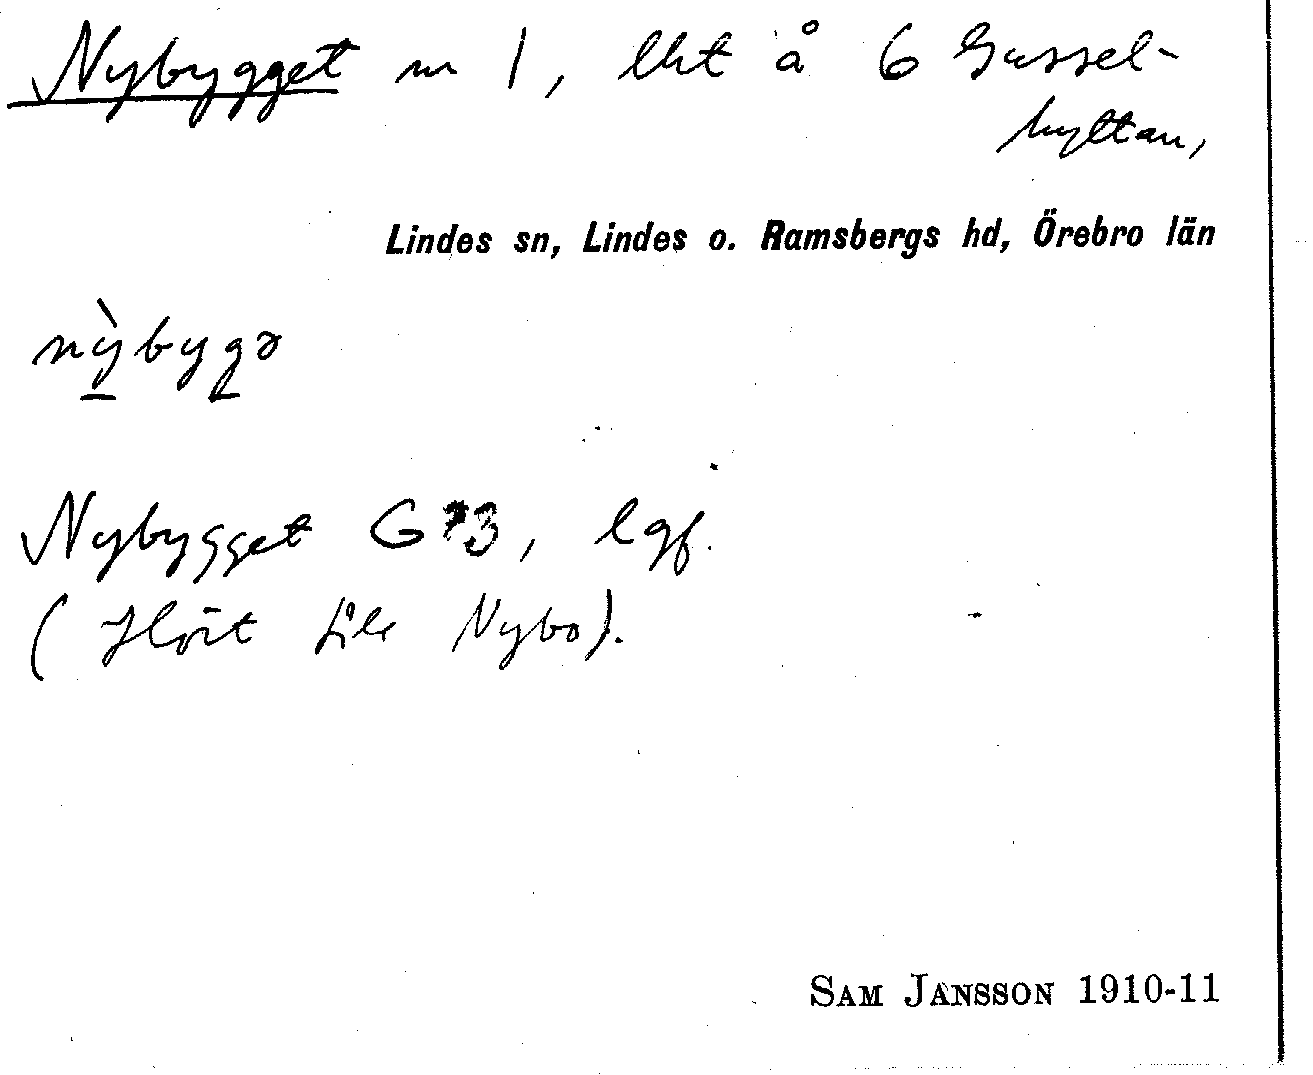 Nybygget nr 1, lht å 6 Gussel-
hyttan,
Lindes sn, Lindes o. Ramsbergs hd, Örebro län
nỳbygə
Nybygget G 3, lgf.
( Hört Nybo).
SAM JANSSON 1910-11